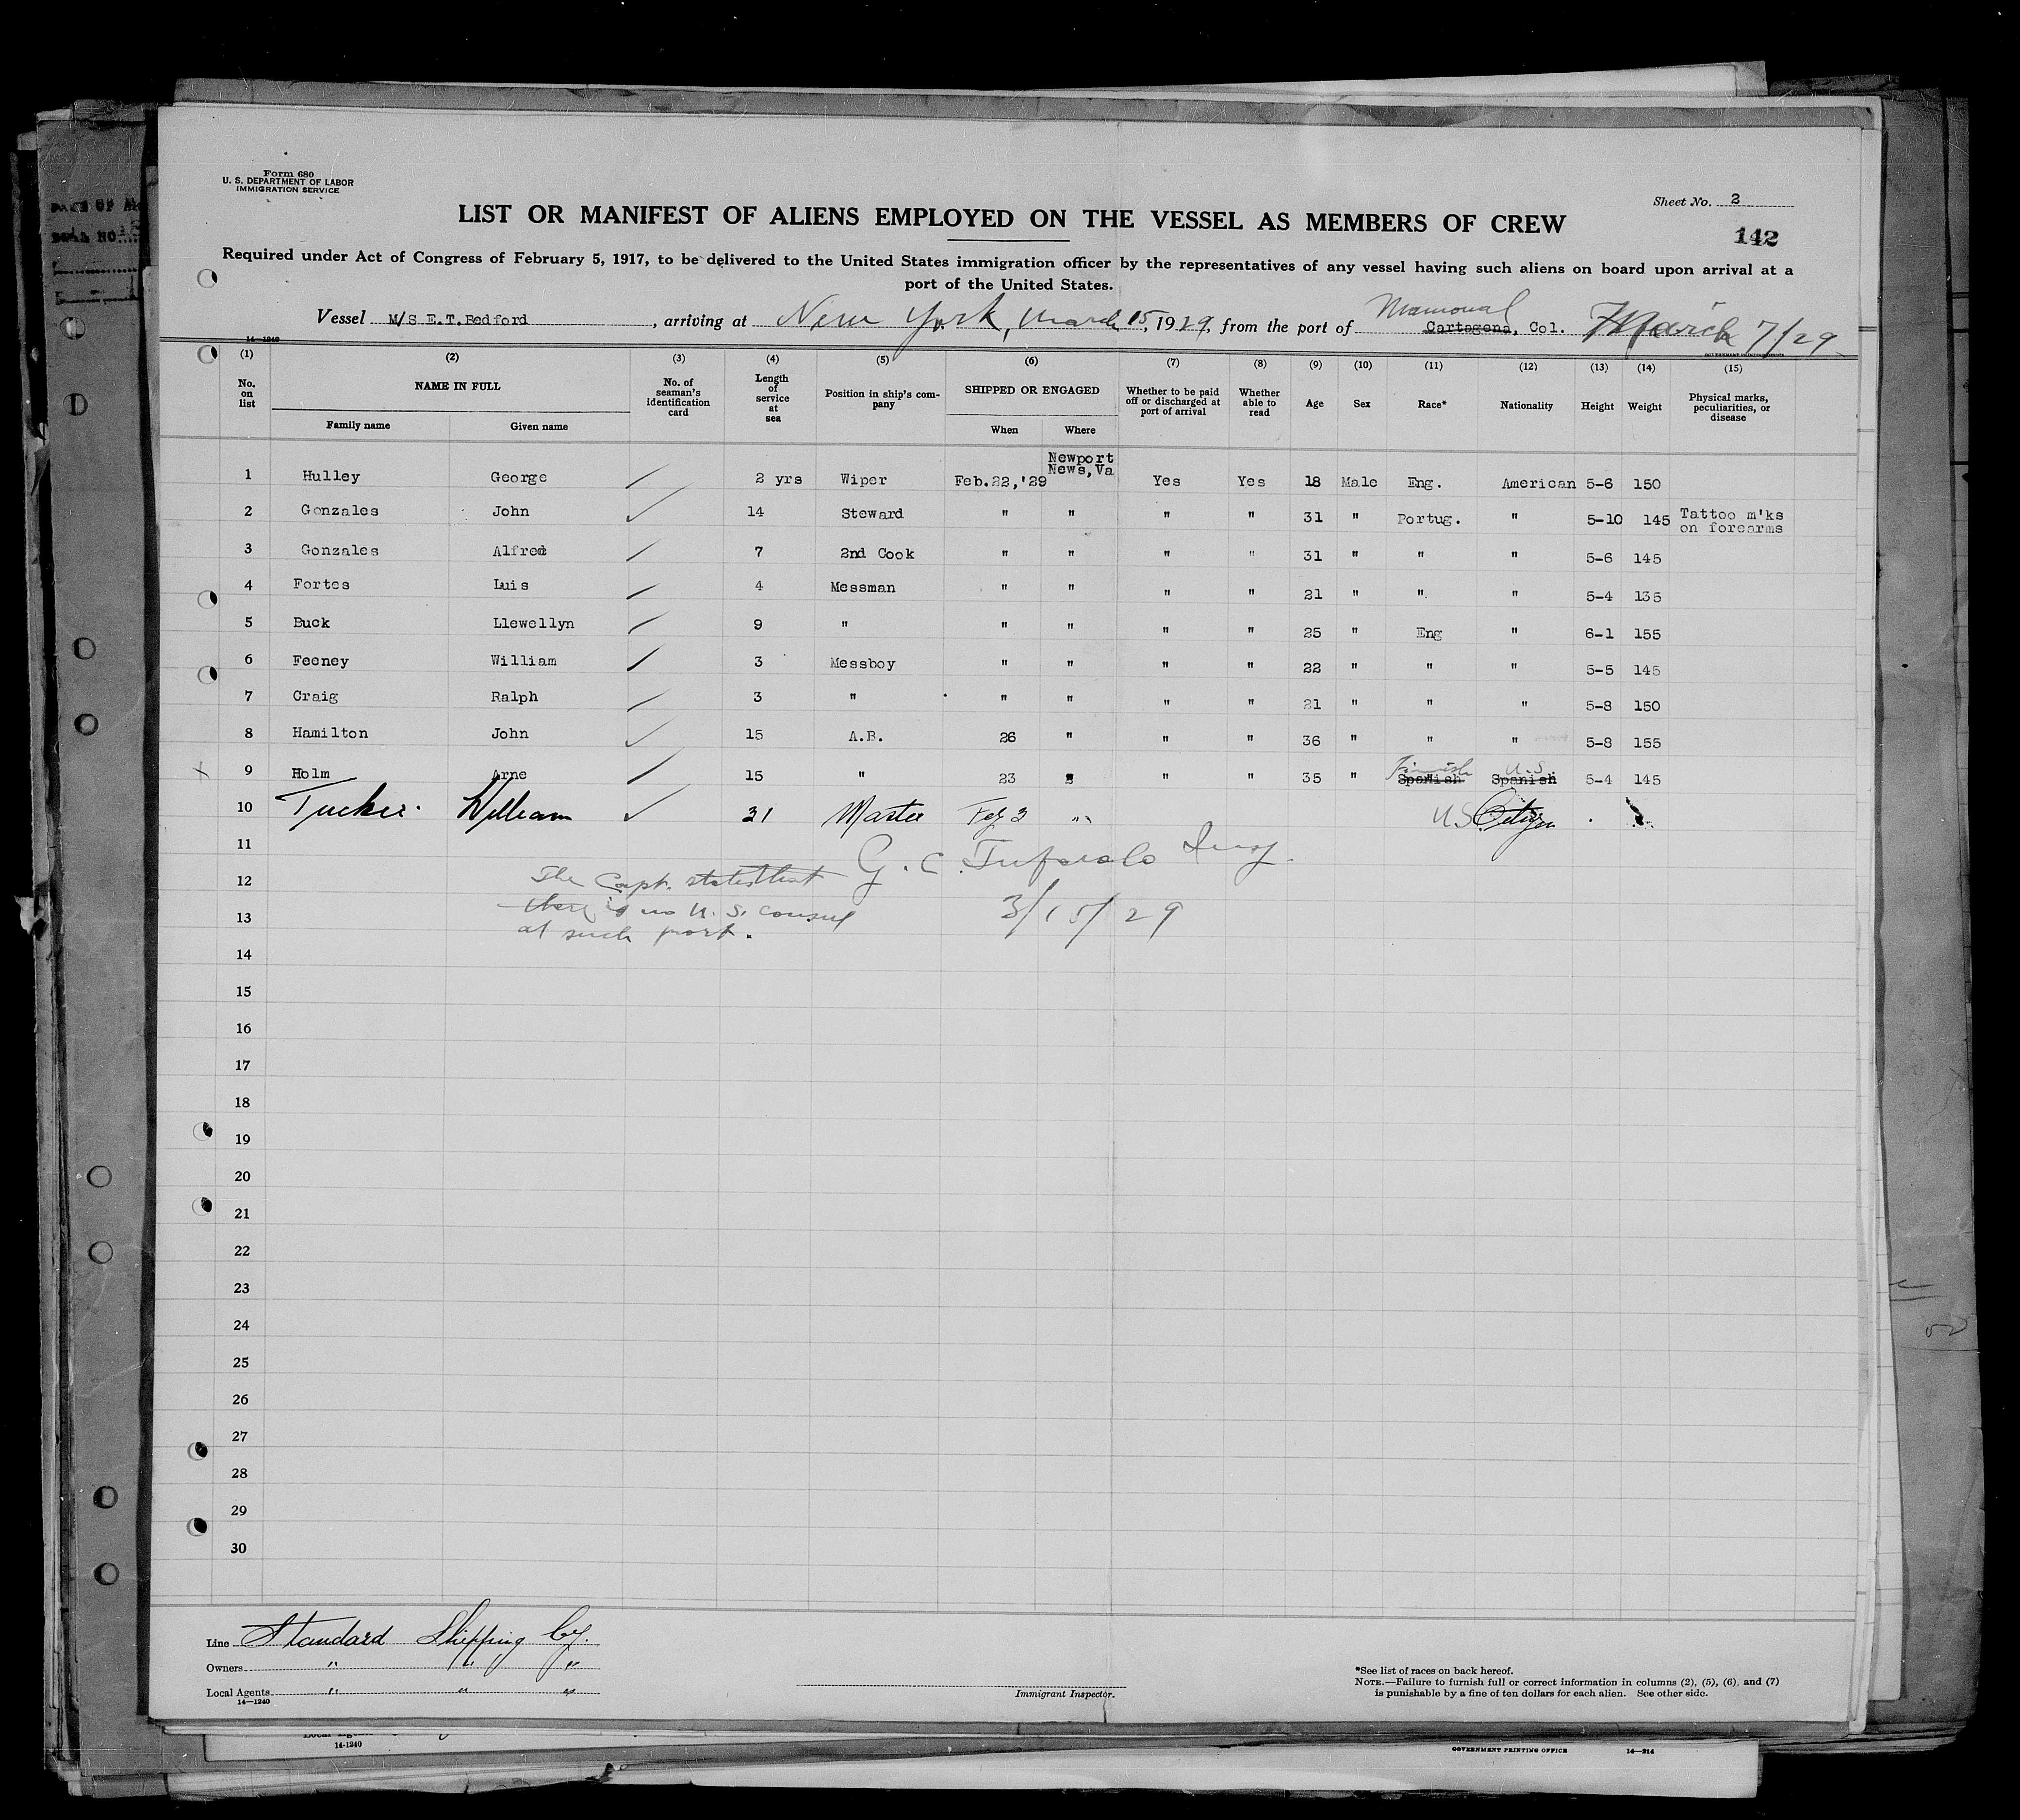 Form 680
U. S. DEPARTMENT OF LABOR
IMMIGRATION SERVICE
Sheet No. 2
LIST OR MANIFEST OF ALIENS EMPLOYED ON THE VESSEL AS MEMBERS OF CREW
142
Required under Act of Congress of February 5, 1917, to be delivered to the United States immigration officer by the representatives of any vessel having such aliens on board upon arrival at a
port of the United States.
Mamonal
Vessel M/S E.T.Bedford, arriving at New York, March 15, 1929, from the port of Cartagena, Col. March 7/29
14—1240
GOVERNMENT PRINTING OFFICE
(1) (2) (3) (4) (5) (6) (7) (8) (9) (10) (11) (12) (13) (14) (15)
No. on list NAME IN FULL No. of seaman's identification card Length of service at sea Position in ship's company SHIPPED OR ENGAGED Whether to be paid off or discharged at port of arrival Whether able to read Age Sex Race* Nationality Height Weight Physical marks, peculiarities, or disease
Family name Given name When Where
Newport
News, Va
1 Hulley George 2 yrs Wiper Feb.22,'29 Yes Yes 18 Male Eng. American 5-6 150
2 Gonzales John 14 Steward " " " " 31 " Portug. " 5-10 145 Tattoo m'ks on forearms
3 Gonzales Alfred 7 2nd Cook " " " " 31 " " " 5-6 145
4 Fortes Luis 4 Messman " " " " 21 " " " 5-4 135
5 Buck Llewellyn 9 " " " " " 25 " Eng " 6-1 155
6 Feeney William 3 Messboy " " " " 22 " " " 5-5 145
7 Craig Ralph 3 " " " " " 21 " " " 5-8 150
8 Hamilton John 15 A.B. 26 " " " 36 " " " 5-8 155
Finnish U.S.
9 Holm Arne 15 " 23 " " 35 " Spanish Spanish 5-4 145
10 Tucker William 31 Master Feb 3 " U.S. Citizen
11
12 The Capt. states that G. C.
13 there is no U. S. consul 3/15/29
at such port.
14
15
16
17
18
19
20
21
22
23
24
25
26
27
28
29
30
Line Standard Shipping Co.
Owners " " "
Local Agents " " "
14—1240
Immigrant Inspector.
*See list of races on back hereof.
NOTE.—Failure to furnish full or correct information in columns (2), (5), (6), and (7)
is punishable by a fine of ten dollars for each alien. See other side.
14-1240
GOVERNMENT PRINTING OFFICE 14—214